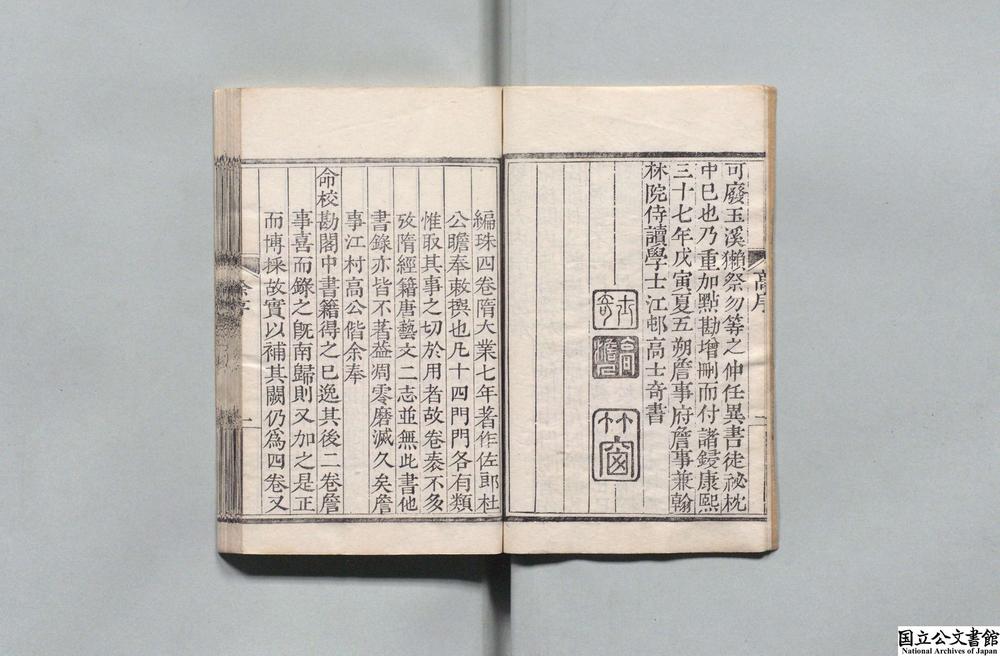 可廢玉溪獺祭勿等之仲任異書徒祕枕
中已也乃重加點勘增刪而付諸鋟康熙
三十七年戊寅夏五朔詹事府詹事兼翰
林院侍讀學士江邨高士奇書
士奇
高澹人
竹窗
高序
一
編珠四卷隋大業七年著作佐郎杜
公瞻奉敕撰也凡十四門門各有類
惟取其事之切於用者故卷袠不多
攷隋經籍唐藝文二志並無此書他
書錄亦皆不著葢凋零磨滅久矣詹
事江村高公偕余奉
命校勘閣中書籍得之已逸其後二卷詹
事喜而錄之旣南歸則又加之是正
而博採故實以補其闕仍爲四卷又
徐序
一
国立公文書館
National Archives of Japan